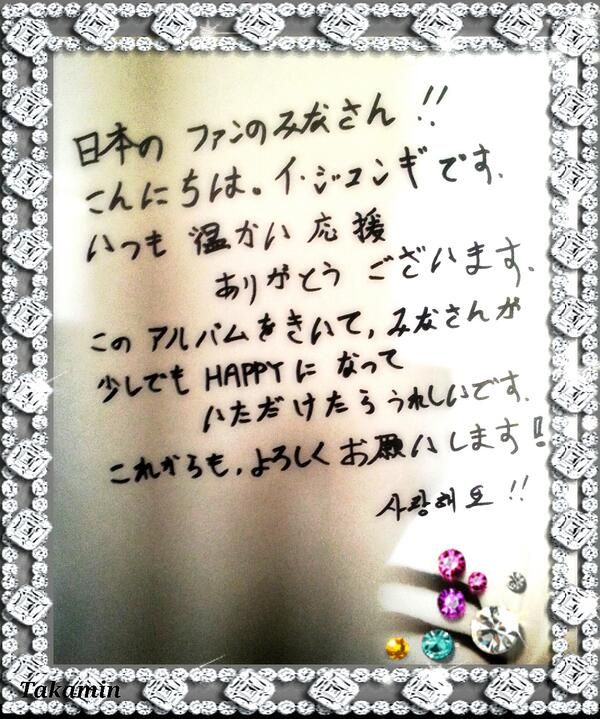 日本の ファンのみなさん!!
こんにちは。イ・ジュンギです.
いつも 温かい 応援
ありがとう ございます.
この アルバムをきいて, みなさんが
少しでも HAPPYに なって
いただけたら うれしいです.
これからも, よろしく お願いします!
사랑해요!!
Takamin